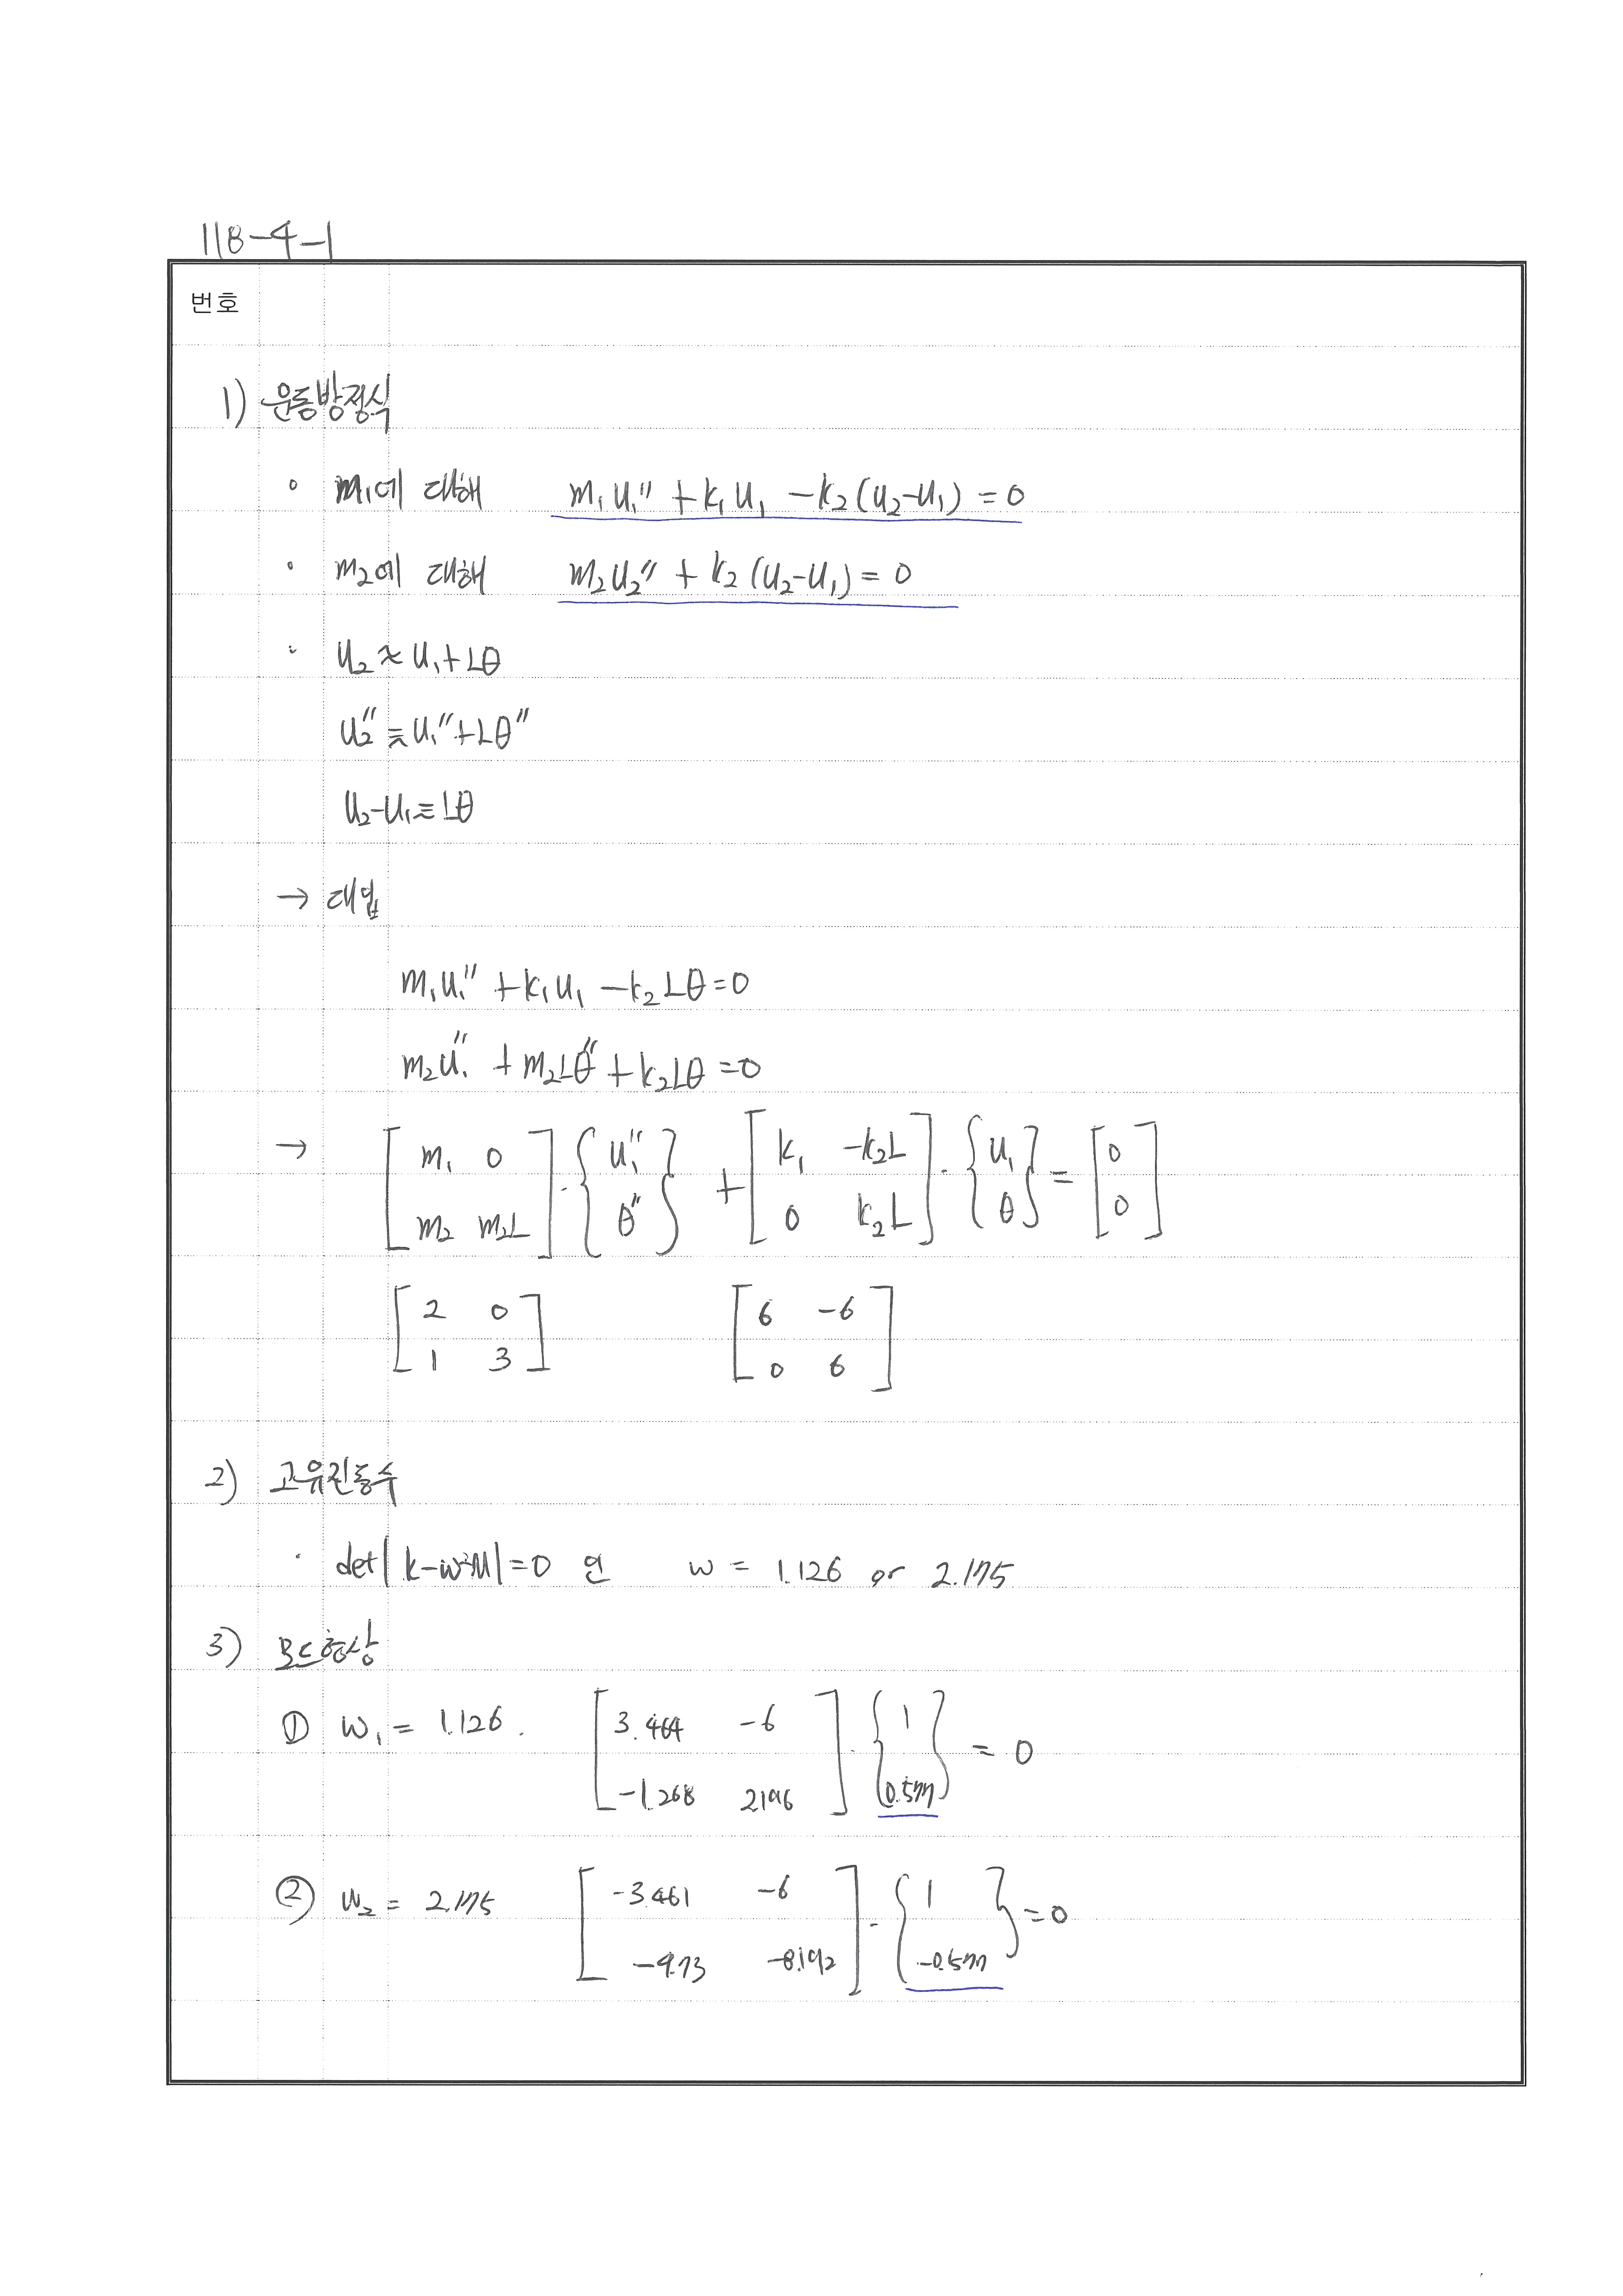 118-4-1
번호
1) 운동방정식
∘ m₁에 대해 m₁u₁'' + k₁u₁ - k₂(u₂-u₁) = 0
∘ m₂에 대해 m₂u₂'' + k₂(u₂-u₁) = 0
∘ u₂ ≈ u₁+Lθ
u₂'' ≒ u₁''+Lθ''
u₂-u₁ ≒ Lθ
→ 대입
m₁u₁'' + k₁u₁ - k₂Lθ = 0
m₂u₁'' + m₂Lθ'' + k₂Lθ = 0
→ [m₁ 0; m₂ m₂L]·{u₁''; θ''} + [k₁ -k₂L; 0 k₂L]·{u₁; θ} = [0; 0]
[2 0; 1 3] [6 -6; 0 6]
2) 고유진동수
· det|k-w²M|=0 인 w = 1.126 or 2.175
3) 모드형상
① w₁ = 1.126. [3.464 -6; -1.268 2.196]·{1; 0.577} = 0
② w₂ = 2.175 [-3.461 -6; -4.73 -8.192]·{1; -0.577} = 0